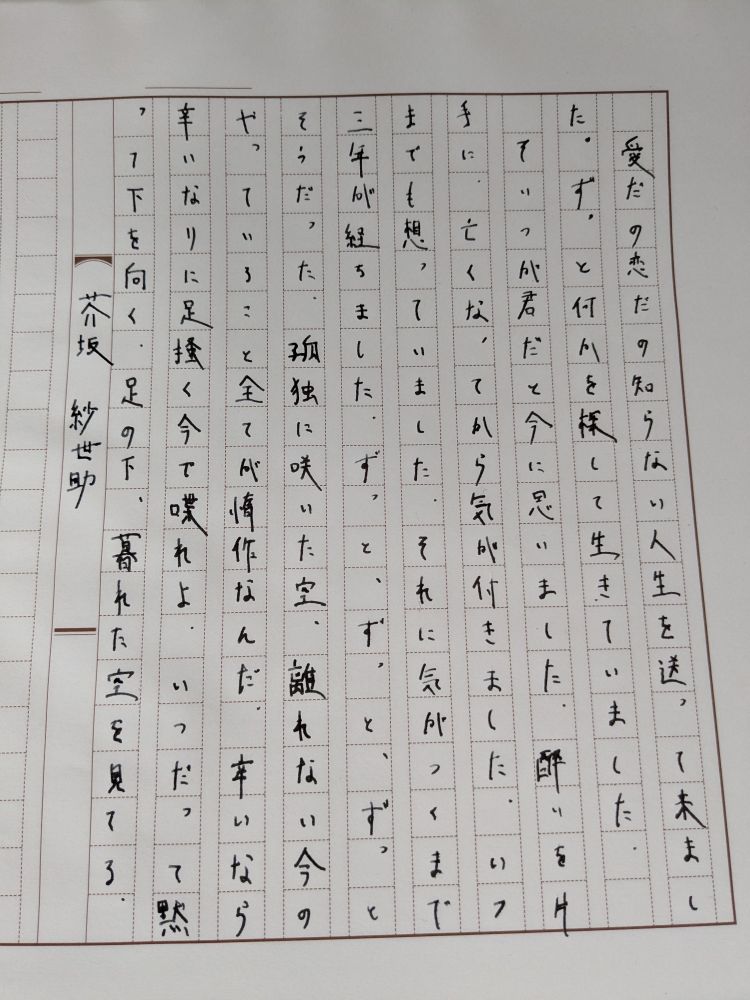 愛だの恋だの知らない人生を送って来まし
た。ずっと何かを探して生きていました.
そいつが君だと今に思いました.酔いを片
手に.亡くなってから気が付きました.いつ
までも想っていました.それに気がつくまで
三年が経ちました.ずっと、ずっと、ずっと
そうだった.孤独に咲いた空、離れない今の
やっていること全てが惰作なんだ.辛いなら
辛いなりに足掻く今で喋れよ.いつだって黙
って下を向く.足の下、暮れた空を見てる.
芥坂 紗世助